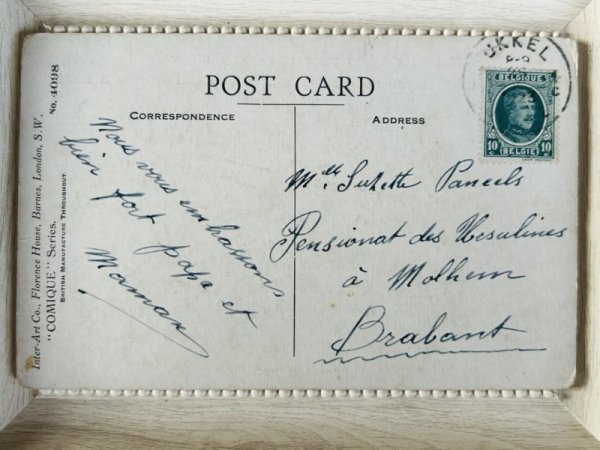 POST CARD
CORRESPONDENCE
ADDRESS
Nous vous embrassons
bien fort papa et
Maman
Mlle Suzette Pancels
Pensionat des Ursulines
à Molhem
Brabant
UKKEL
BELGIQUE
10 10
BELGIË
Inter-Art Co., Florence House, Barnes, London, S.W.
"COMIQUE" Series.
BRITISH MANUFACTURE THROUGHOUT.
No. 4098